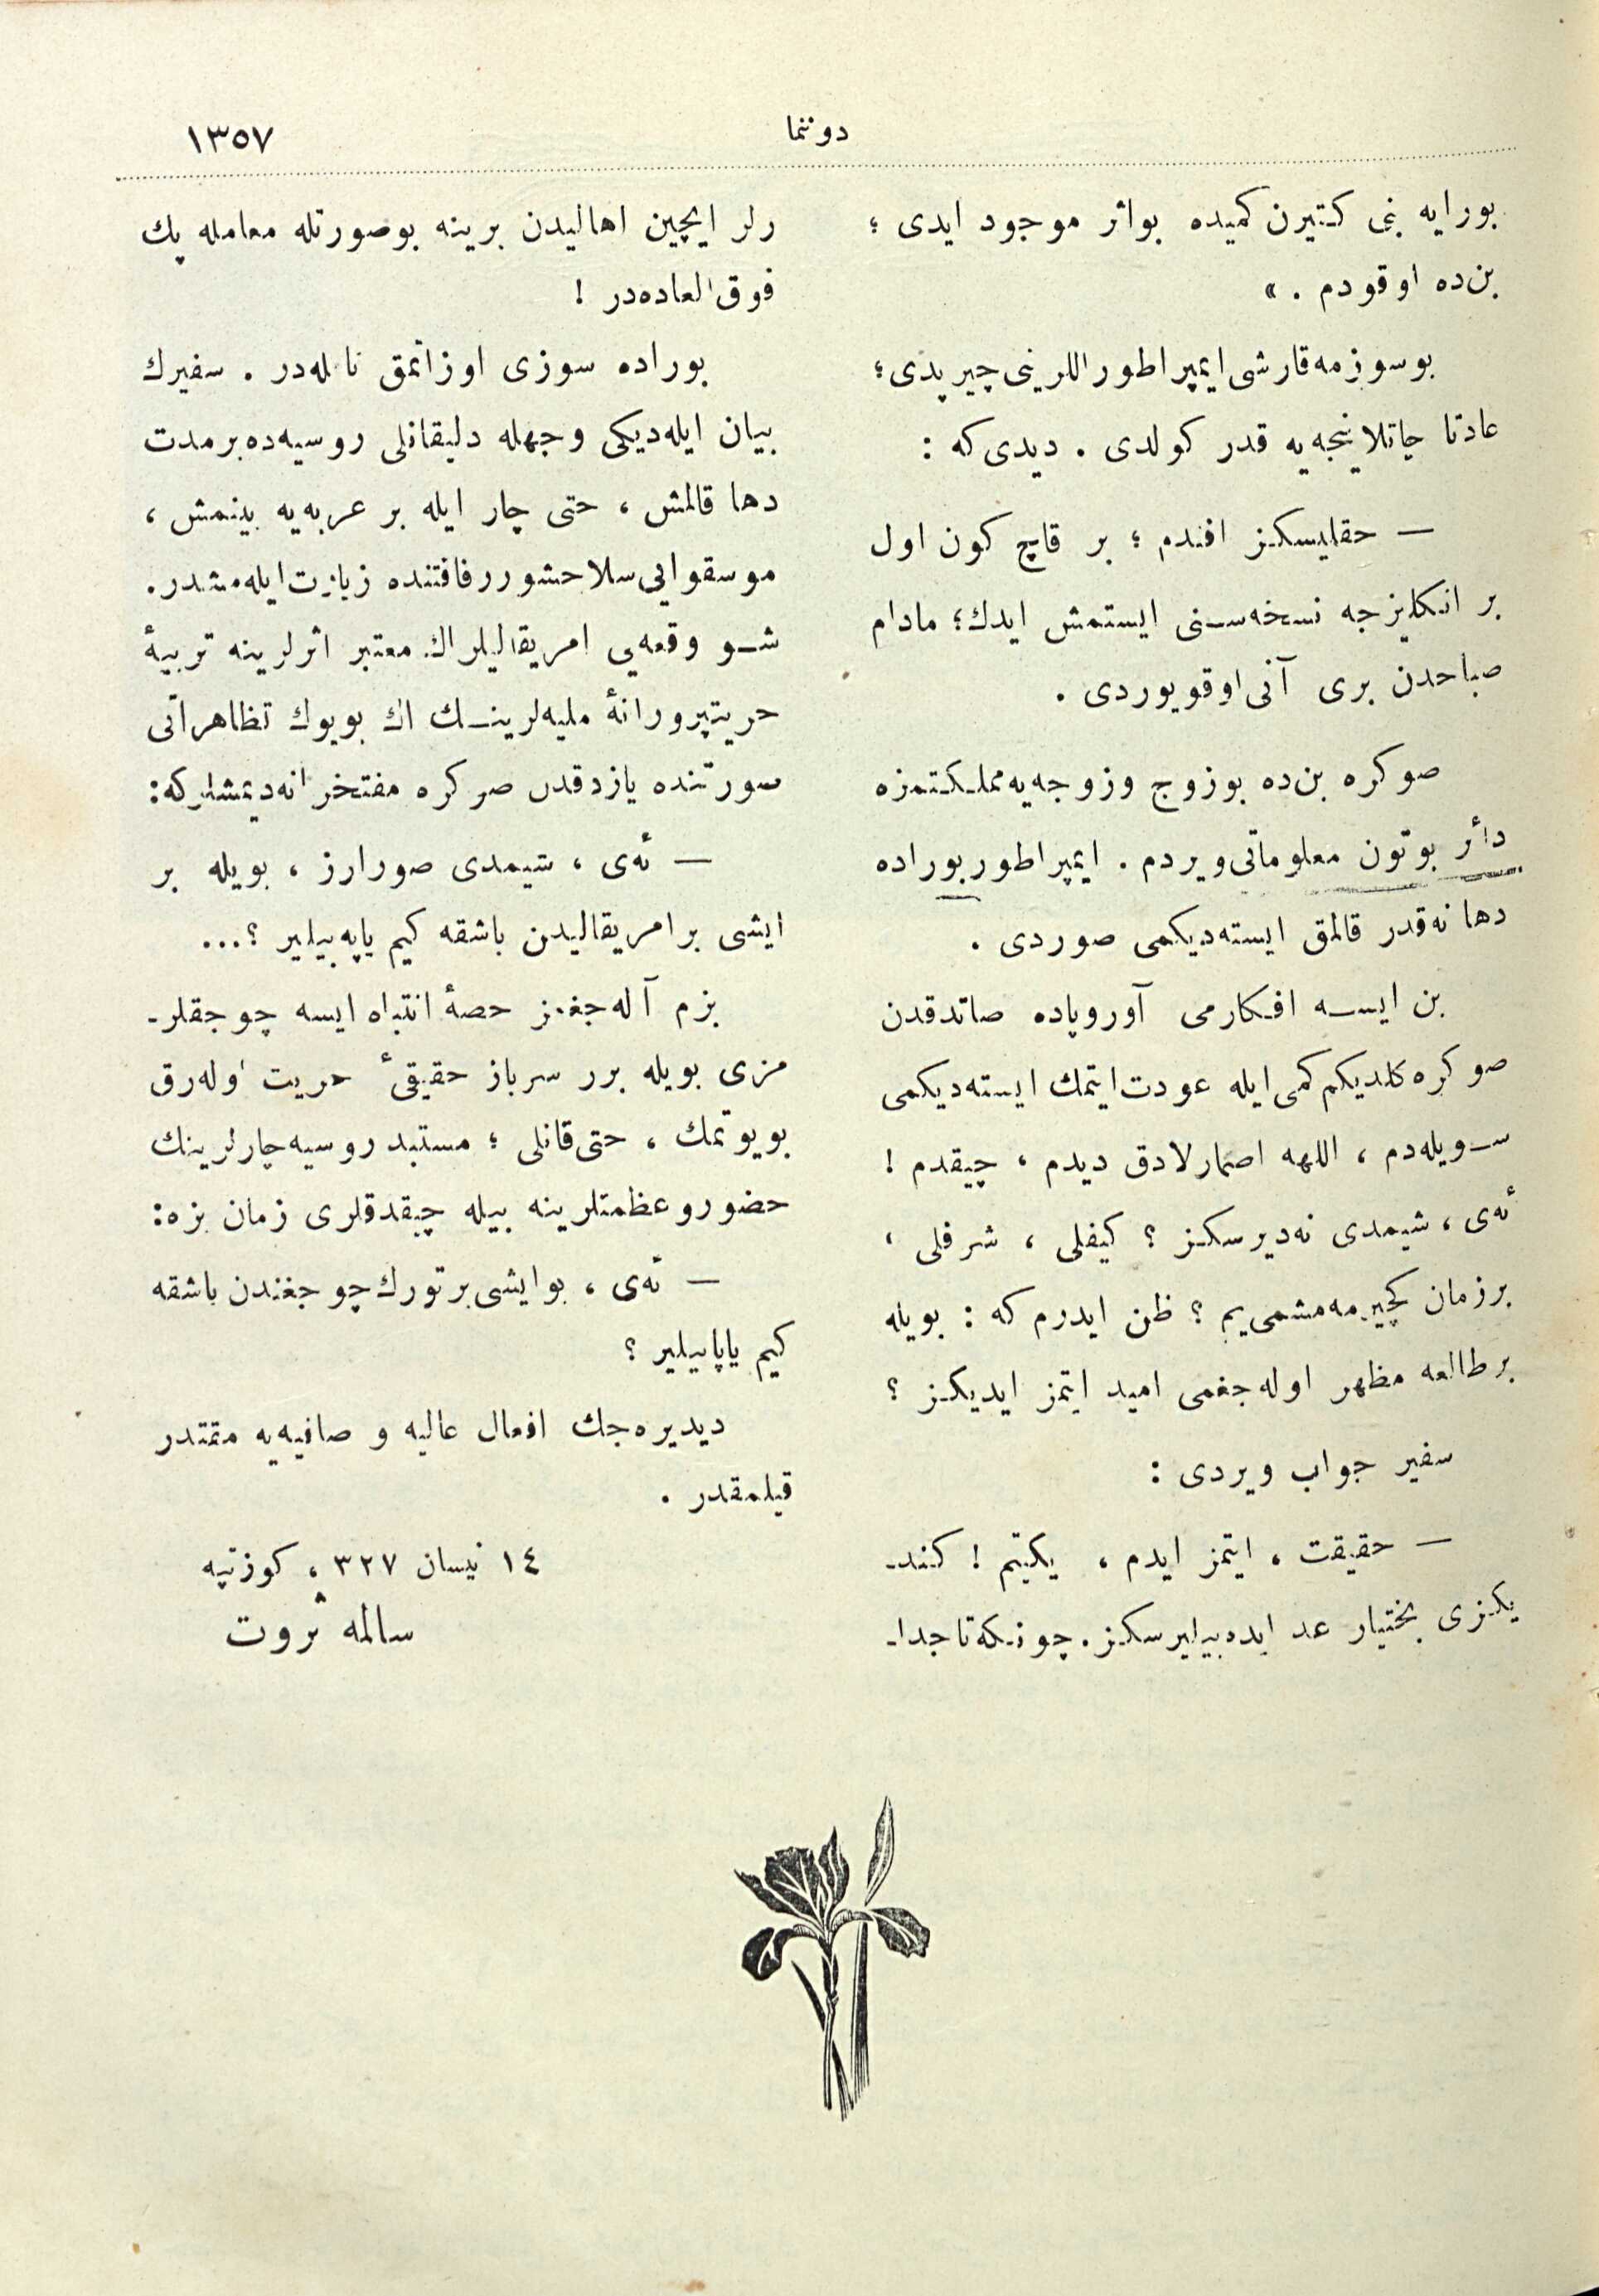 دوننما
١٣٥٧
بورايه بنى كتيرن كميده بواثر موجود ايدى ؛
بن‌ده اوقودم . »
بوسوزمه‌قارشى ايمپراطور اللرينى چيرپدى ؛
عادتا چاتلاينجه‌يه قدر كولدى . ديدى‌كه :
— حقليسكز افندم ؛ بر قاچ كون اول
بر انكليزجه نسخه‌سنى ايستمش ايدك ؛ مادام
صباحدن برى آنى اوقويوردى .
صوكره بن‌ده بوزوج وزوجه‌يه مملكتمزه
دائر بوتون معلوماتى ويردم . ايمپراطور بوراده
دها نه‌قدر قالمق ايسته‌ديكمى صوردى .
بن ايسه افكارمى آوروپاده صاتدقدن
صوكره كلديكم كمى ايله عودت ايتمك ايسته‌ديكمى
سويله‌دم ، اللهه اصمارلادق ديدم ، چيقدم !
ئه‌ى ، شيمدى نه‌ديرسكز ؟ كيفلى ، شرفلى ،
برزمان كچيرمه‌مشمى‌يم ؟ ظن ايدرم كه : بويله
برطالعه مظهر اوله‌جغمى اميد ايتمز ايديكز ؟
سفير جواب ويردى :
— حقيقت ، ايتمز ايدم ، يكيتم ! كند-
يكزى بختيار عد ايده‌بيليرسكز . چونكه تاجدا-
رلر ايچين اهاليدن برينه بوصورتله معامله پك
فوق‌العاده‌در !
بوراده سوزى اوزاتمق نابله‌در . سفيرك
بيان ايله‌ديكى وجهله دليقانلى روسيه‌ده برمدت
دها قالمش ، حتى چار ايله بر عربه‌يه بينمش ،
موسقوايى سلاحشور رفاقتنده زيارت ايله‌مشدر .
شو وقعه‌يى امريقاليلر اك معتبر اثرلرينه تربيۀ
حريتپرورانۀ مليه‌لرينك اك بويوك تظاهراتى
سورتنده يازدقدن صوكره مفتخرانه ديمشلركه :
— ئه‌ى ، شيمدى صورارز ، بويله بر
ايشى برامريقاليدن باشقه كيم ياپه‌بيلير ؟...
بزم آله‌جغمز حصۀ انتباه ايسه چوجقلر-
مزى بويله برر سرباز حقيقئ حريت اوله‌رق
بويوتمك ، حتى قانلى ؛ مستبد روسيه چارلرينك
حضوروعظمتلرينه بيله چيقدقلرى زمان بزه :
— ئه‌ى ، بوايشى برتورك چوجغندن باشقه
كيم ياپابيلير ؟
ديديره‌جك افعال عاليه و صافيه‌يه مقتدر
قيلمقدر .
١٤ نيسان ٣٢٧ ، كوزتپه
سالمه ثروت